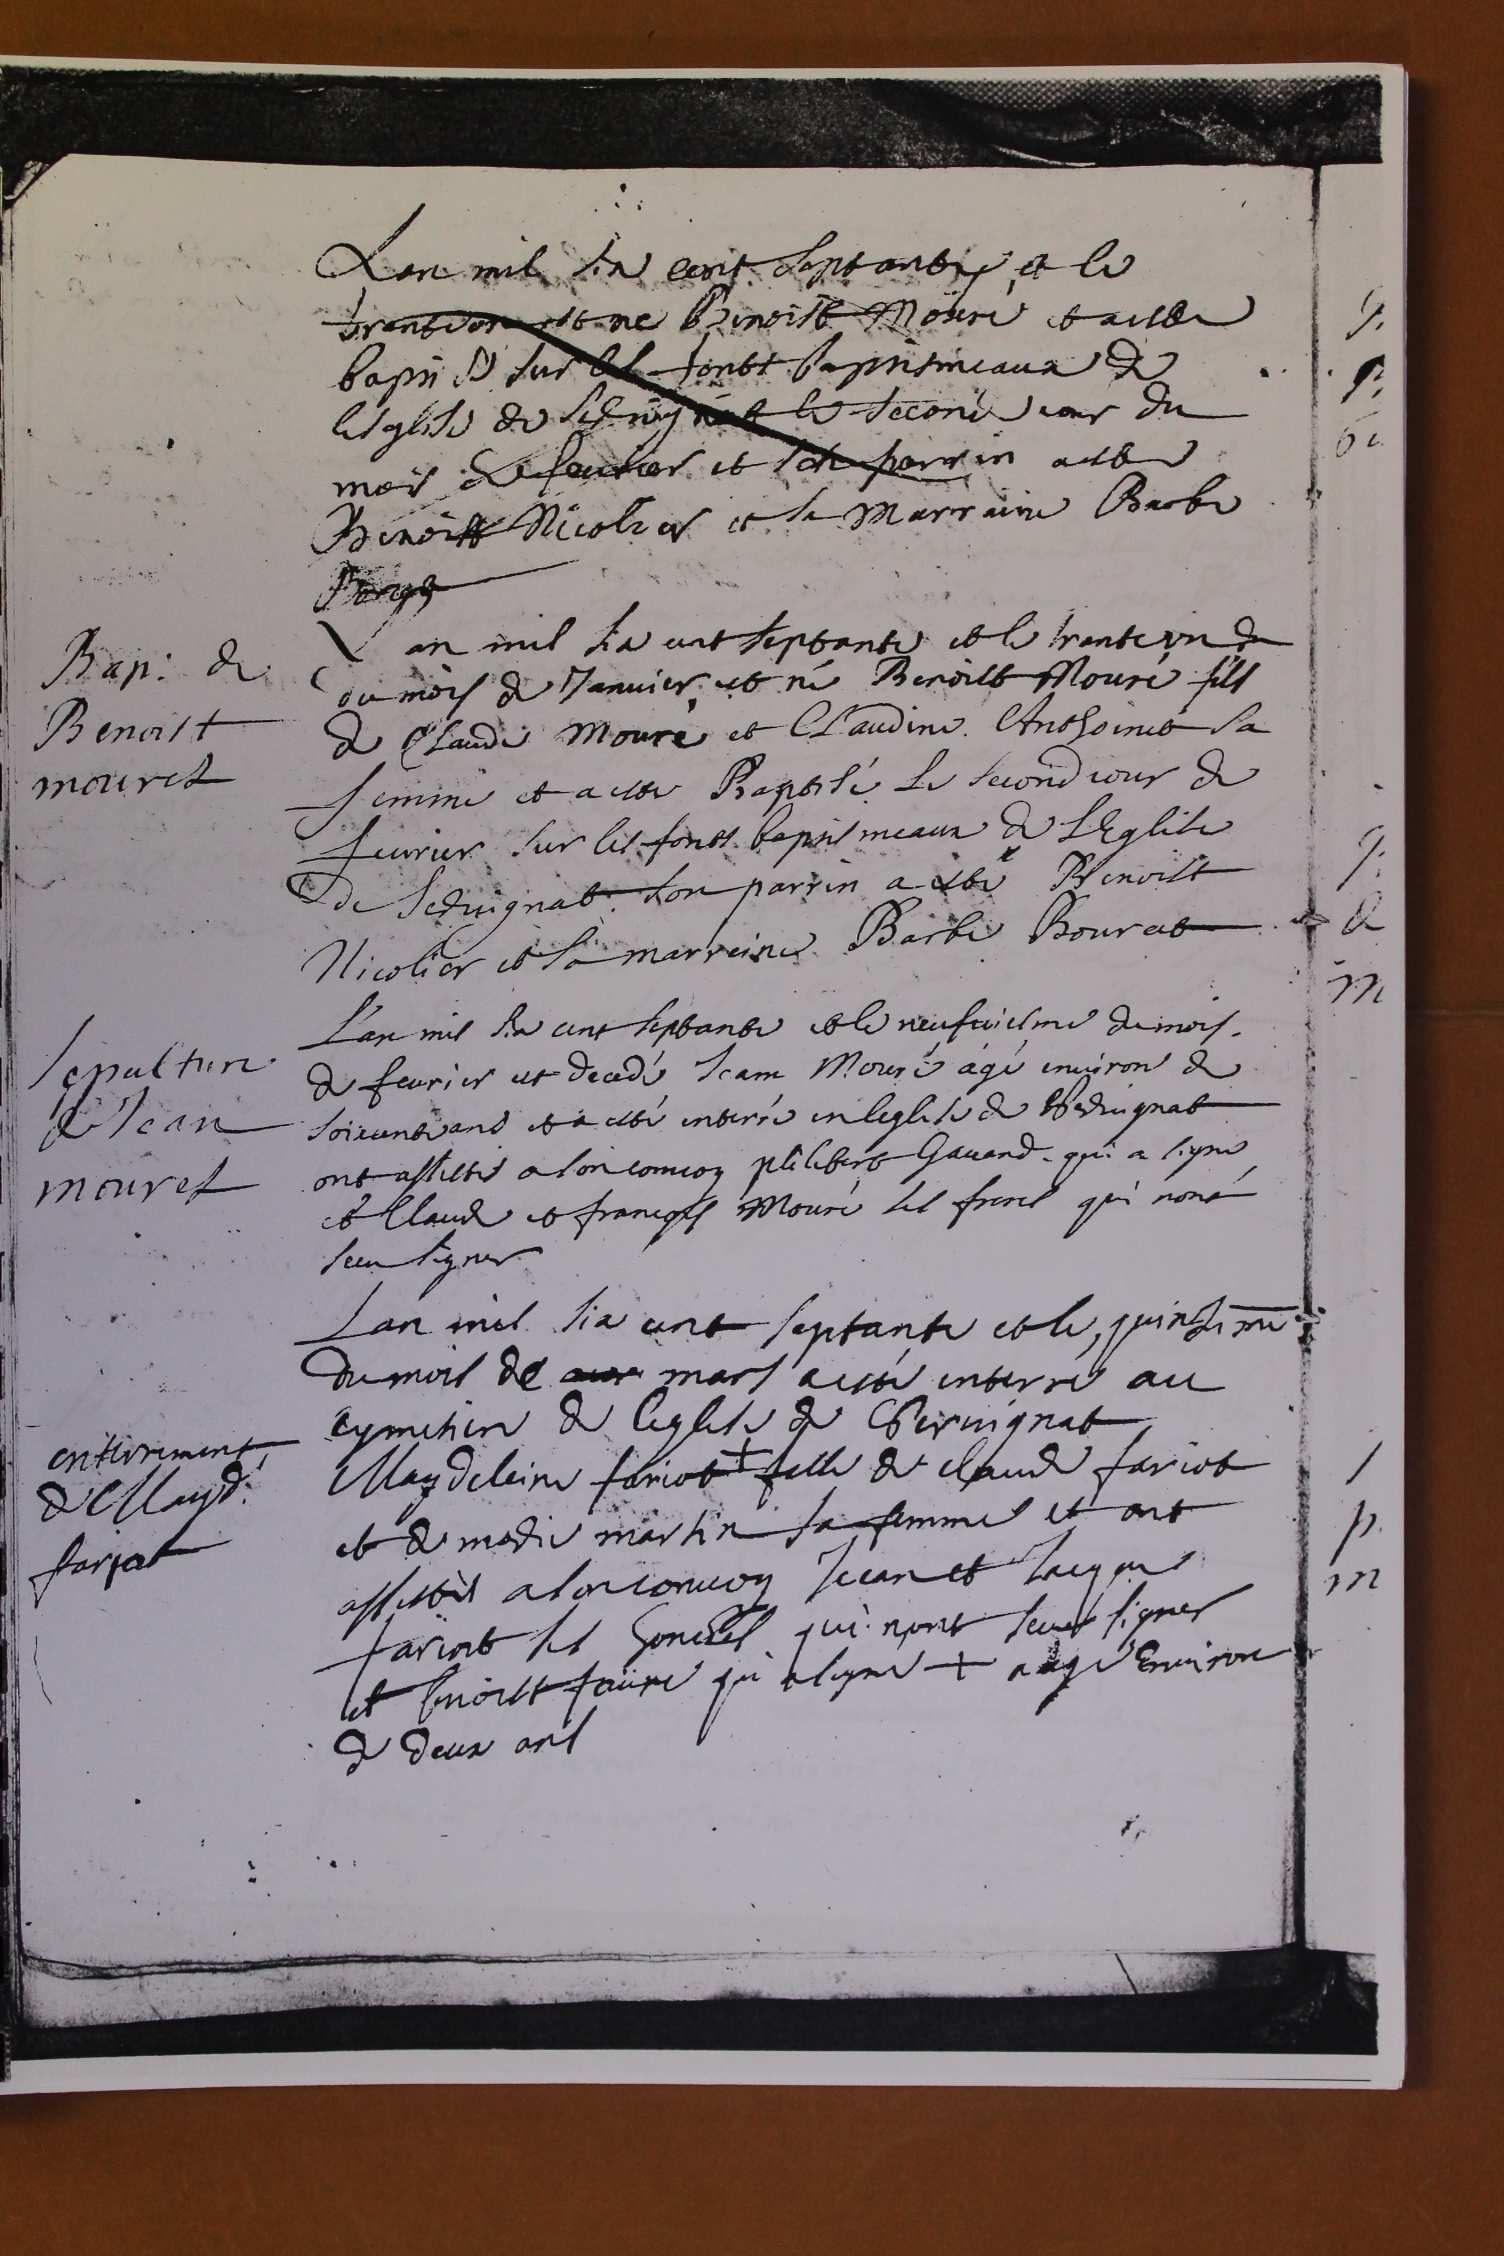 Lan mil six cent septante, et le
trante on est ne Benoist Mouré et a esté
baptisé sur les fonts baptismeaux de
lesglise de Seruignat le second iour du
mois de feurier et son parrin a esté
Benoist Nicolier et sa Marraine Barbe
Bap: de
Benoist
mouret
Lan mil six cent septante et le trante vn de
du mois de Januier est né Benoist Mouré fils
de Claude Mouré et Claudine Anthoinet sa
femme et a esté Baptisé le second iour de
feurier sur les fonts baptismeaux de L'Eglise
de Seruignat son parrin a esté Benoist
Nicolier et sa marreine Barbe Bourat
sepulture
de Jean
mouret
L'an mil six cent septante et le neufuiesme du mois
de feurier est decedé Jean Mouré agé enuiron de
soixante ans et a esté enterré en leglise de Seruignat
ont assistés a son conuoy philibert Gauand qui a signé
et Claude et françois Mouré ses freres qui nont
sceu signer
enterrement
de Magd.
farjot
Lan mil six cent septante et le quinsime
du mois de mars a esté enterré au
cymetiere de leglise de Seruignat
Magdeleine fariot + fille de claude fariot
et de martin sa femme et ont
assistés a son conuoy Jean et Jacque
fariot ses qui n'ont sceu signer
et benoist faure qui a signé + aagé Enuiron
de deux ans